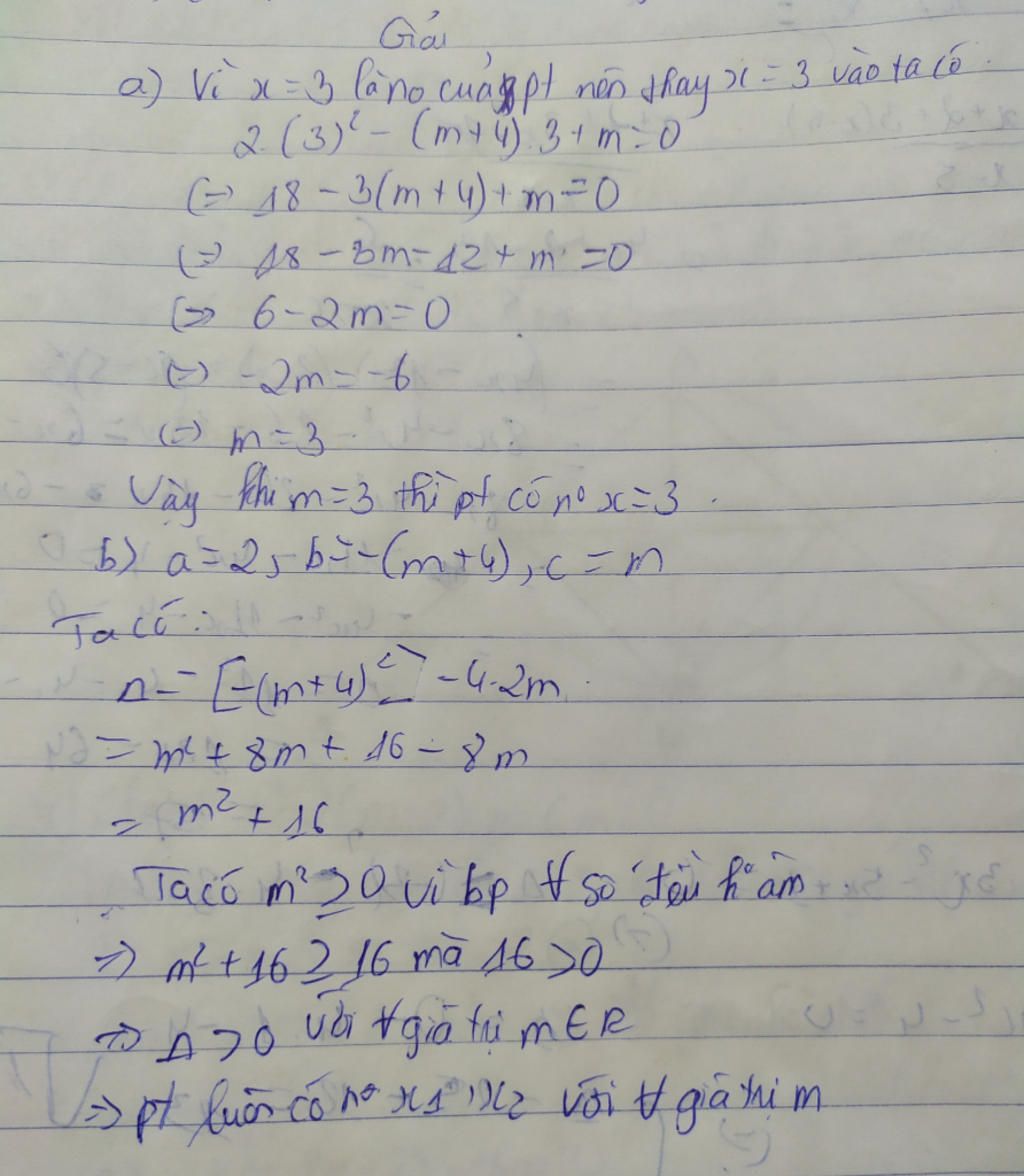 Giải
a) Vì x = 3 là no của pt nên thay x = 3 vào ta có
2.(3)² - (m+4).3 + m = 0
(=) 18 - 3(m+4) + m = 0
(=) 18 - 3m - 12 + m = 0
(=) 6 - 2m = 0
(=) -2m = -6
(=) m = 3
Vậy khi m = 3 thì pt có nº x = 3.
b) a = 2, b = -(m+4), c = m
Ta có:
Δ = [-(m+4)²] - 4.2m
= m² + 8m + 16 - 8m
= m² + 16
Ta có m² ≥ 0 vì bp ∀ số đều kº âm
=> m² + 16 ≥ 16 mà 16 > 0
=> Δ > 0 với ∀ giá trị m ∈ R
=> pt luôn có nº x1, x2 với ∀ giá trị m